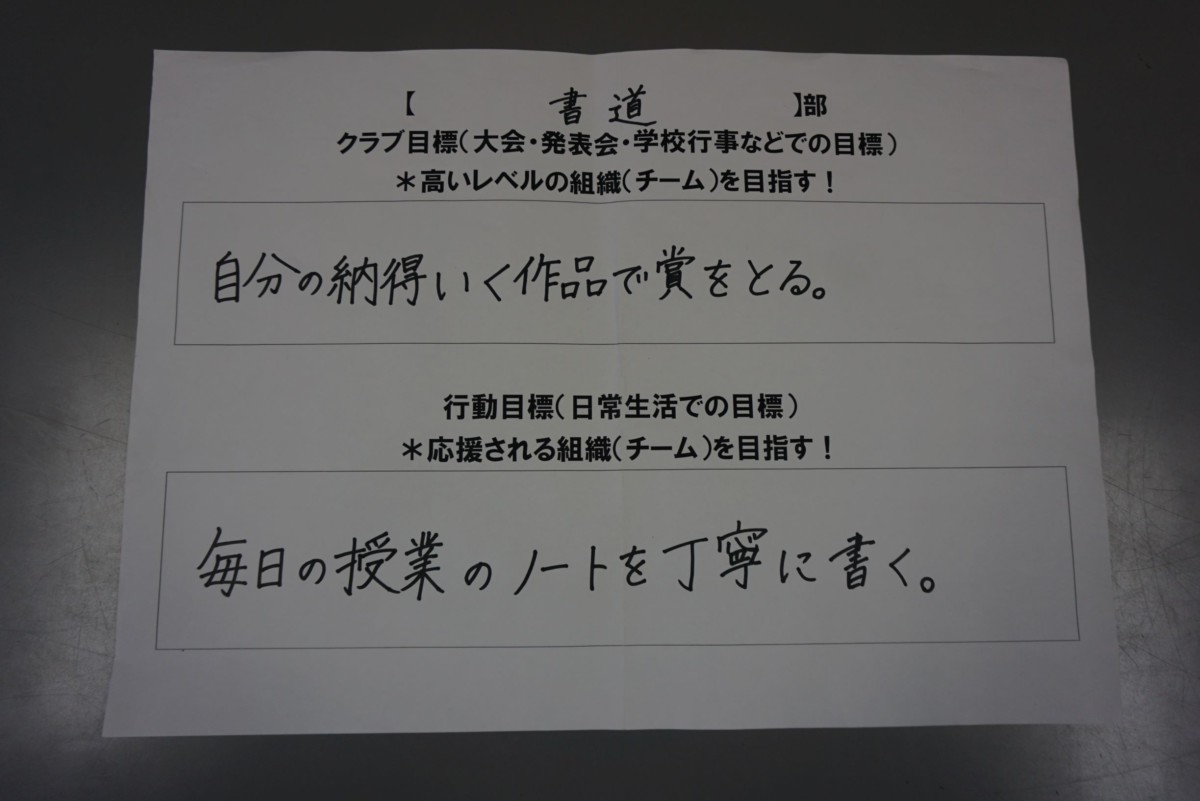 【 書道 】部
クラブ目標(大会・発表会・学校行事などでの目標)
＊高いレベルの組織(チーム)を目指す！
自分の納得いく作品で賞をとる。
行動目標(日常生活での目標)
＊応援される組織(チーム)を目指す！
毎日の授業のノートを丁寧に書く。